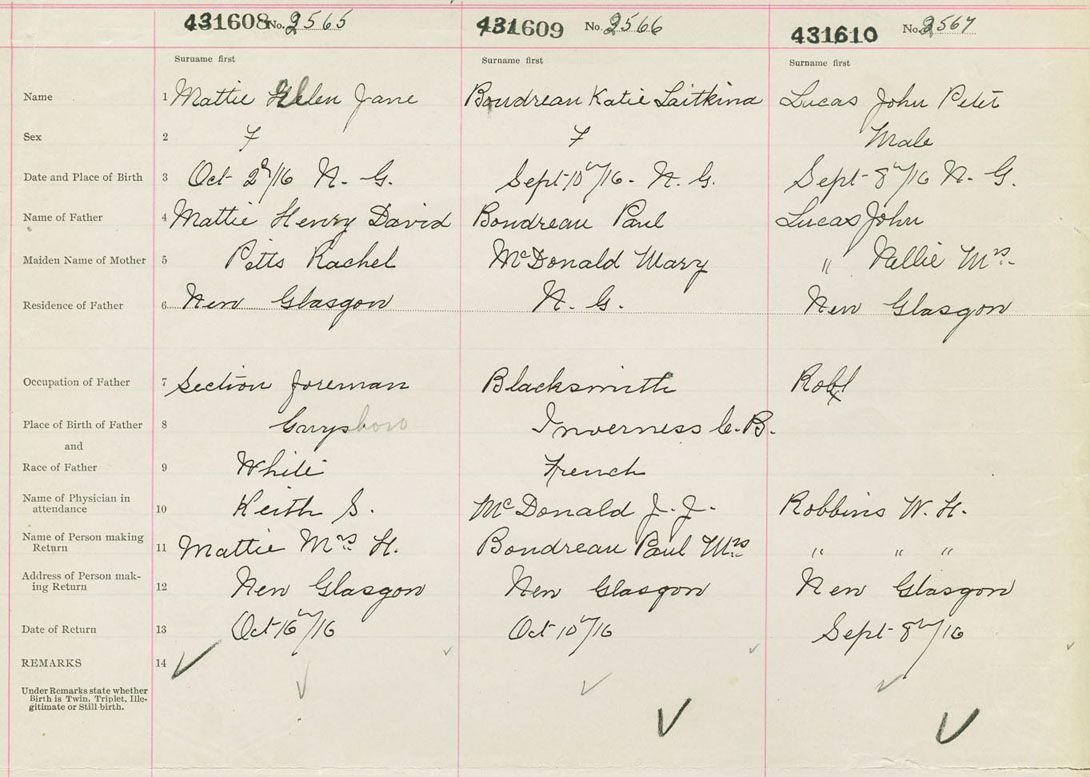 431608 No. 2565 431609 No. 2566 431610 No. 2567
Surname first Surname first Surname first
Name 1 Mattie Helen Jane Boudreau Katie Lucas John Peter
Sex 2 F F Male
Date and Place of Birth 3 Oct 2nd/16 N. G. Sept 10th/16 - N. G. Sept 8th/16 N. G.
Name of Father 4 Mattie Henry David Boudreau Paul Lucas John
Maiden Name of Mother 5 Pitts Rachel McDonald Mary " Nellie Mrs.
Residence of Father 6 New Glasgow N. G. New Glasgow
Occupation of Father 7 Section foreman Blacksmith
Place of Birth of Father 8 Guysboro Inverness C. B.
and
Race of Father 9 White French
Name of Physician in
attendance 10 Keith S. McDonald J. J. Robbins W. H.
Name of Person making
Return 11 Mattie Mrs. H. Boudreau Paul Mrs. " " "
Address of Person mak-
ing Return 12 New Glasgow New Glasgow New Glasgow
Date of Return 13 Oct 16th/16 Oct 10th/16 Sept 8th/16
REMARKS 14
Under Remarks state whether
Birth is Twin, Triplet, Ille-
gitimate or Still-birth.